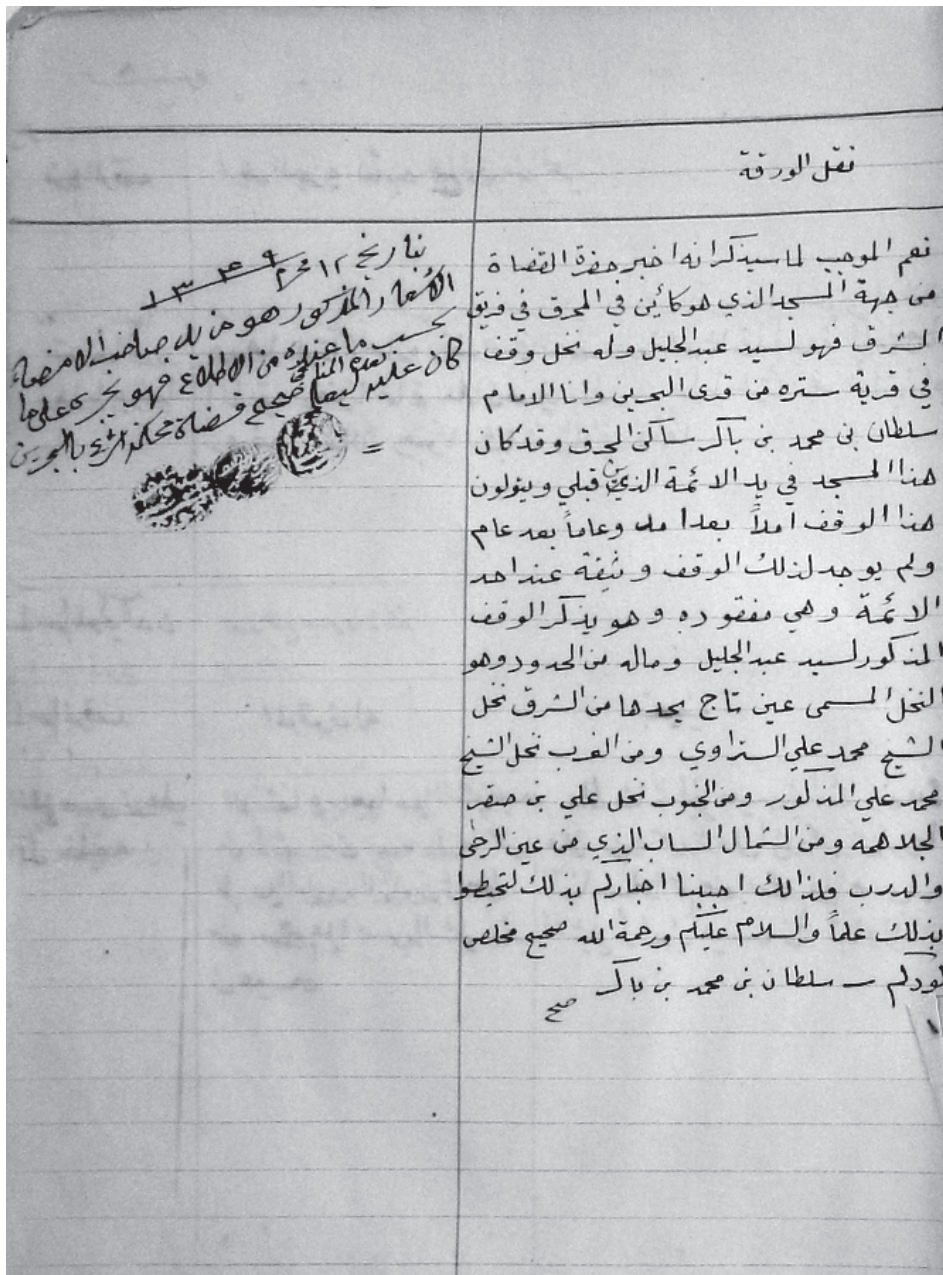 نقل الورقة
نعم الموجب لما سيذكر انه اخبر حضرة القضاة
من جهة المسجد الذي هو كائن في المحرق في فريق
الشرق فهو لسيد عبد الجليل وله نخل وقف
في قرية ستره من قرى البحرين وانا الامام
سلطان بن محمد بن باكر ساكن المحرق وقد كان
هذا المسجد في يد الائمة الذين قبلي ويتولون
هذا الوقف امداً بعد امد وعاماً بعد عام
ولم يوجد لذلك الوقف وثيقة عند احد
الائمة وهي مفقوده وهو يذكر الوقف
المذكور لسيد عبد الجليل وماله من الحدود وهو
النخل المسمى عين تاج يحدها من الشرق نخل
الشيخ محمد علي الستراوي ومن الغرب نخل الشيخ
محمد علي المذكور ومن الجنوب نخل علي بن صقر
الجلاهمه ومن الشمال الساب الذي من عين الرحى
والدرب فلذالك احببنا اخباركم بذلك لتحيطوا
بذلك علماً والسلام عليكم ورحمة الله صحيح مخلص
لودكم سلطان بن محمد بن باكر
صح
بتاريخ ١٢ محرم ١٣٤٩
المذكور هو من يد صاحب الامضاء
بحسب ما عنده من الاطلاع فهو يجري على ما
كان عليه ليعلم صحيح قضاة محكمة الشرع بالبحرين